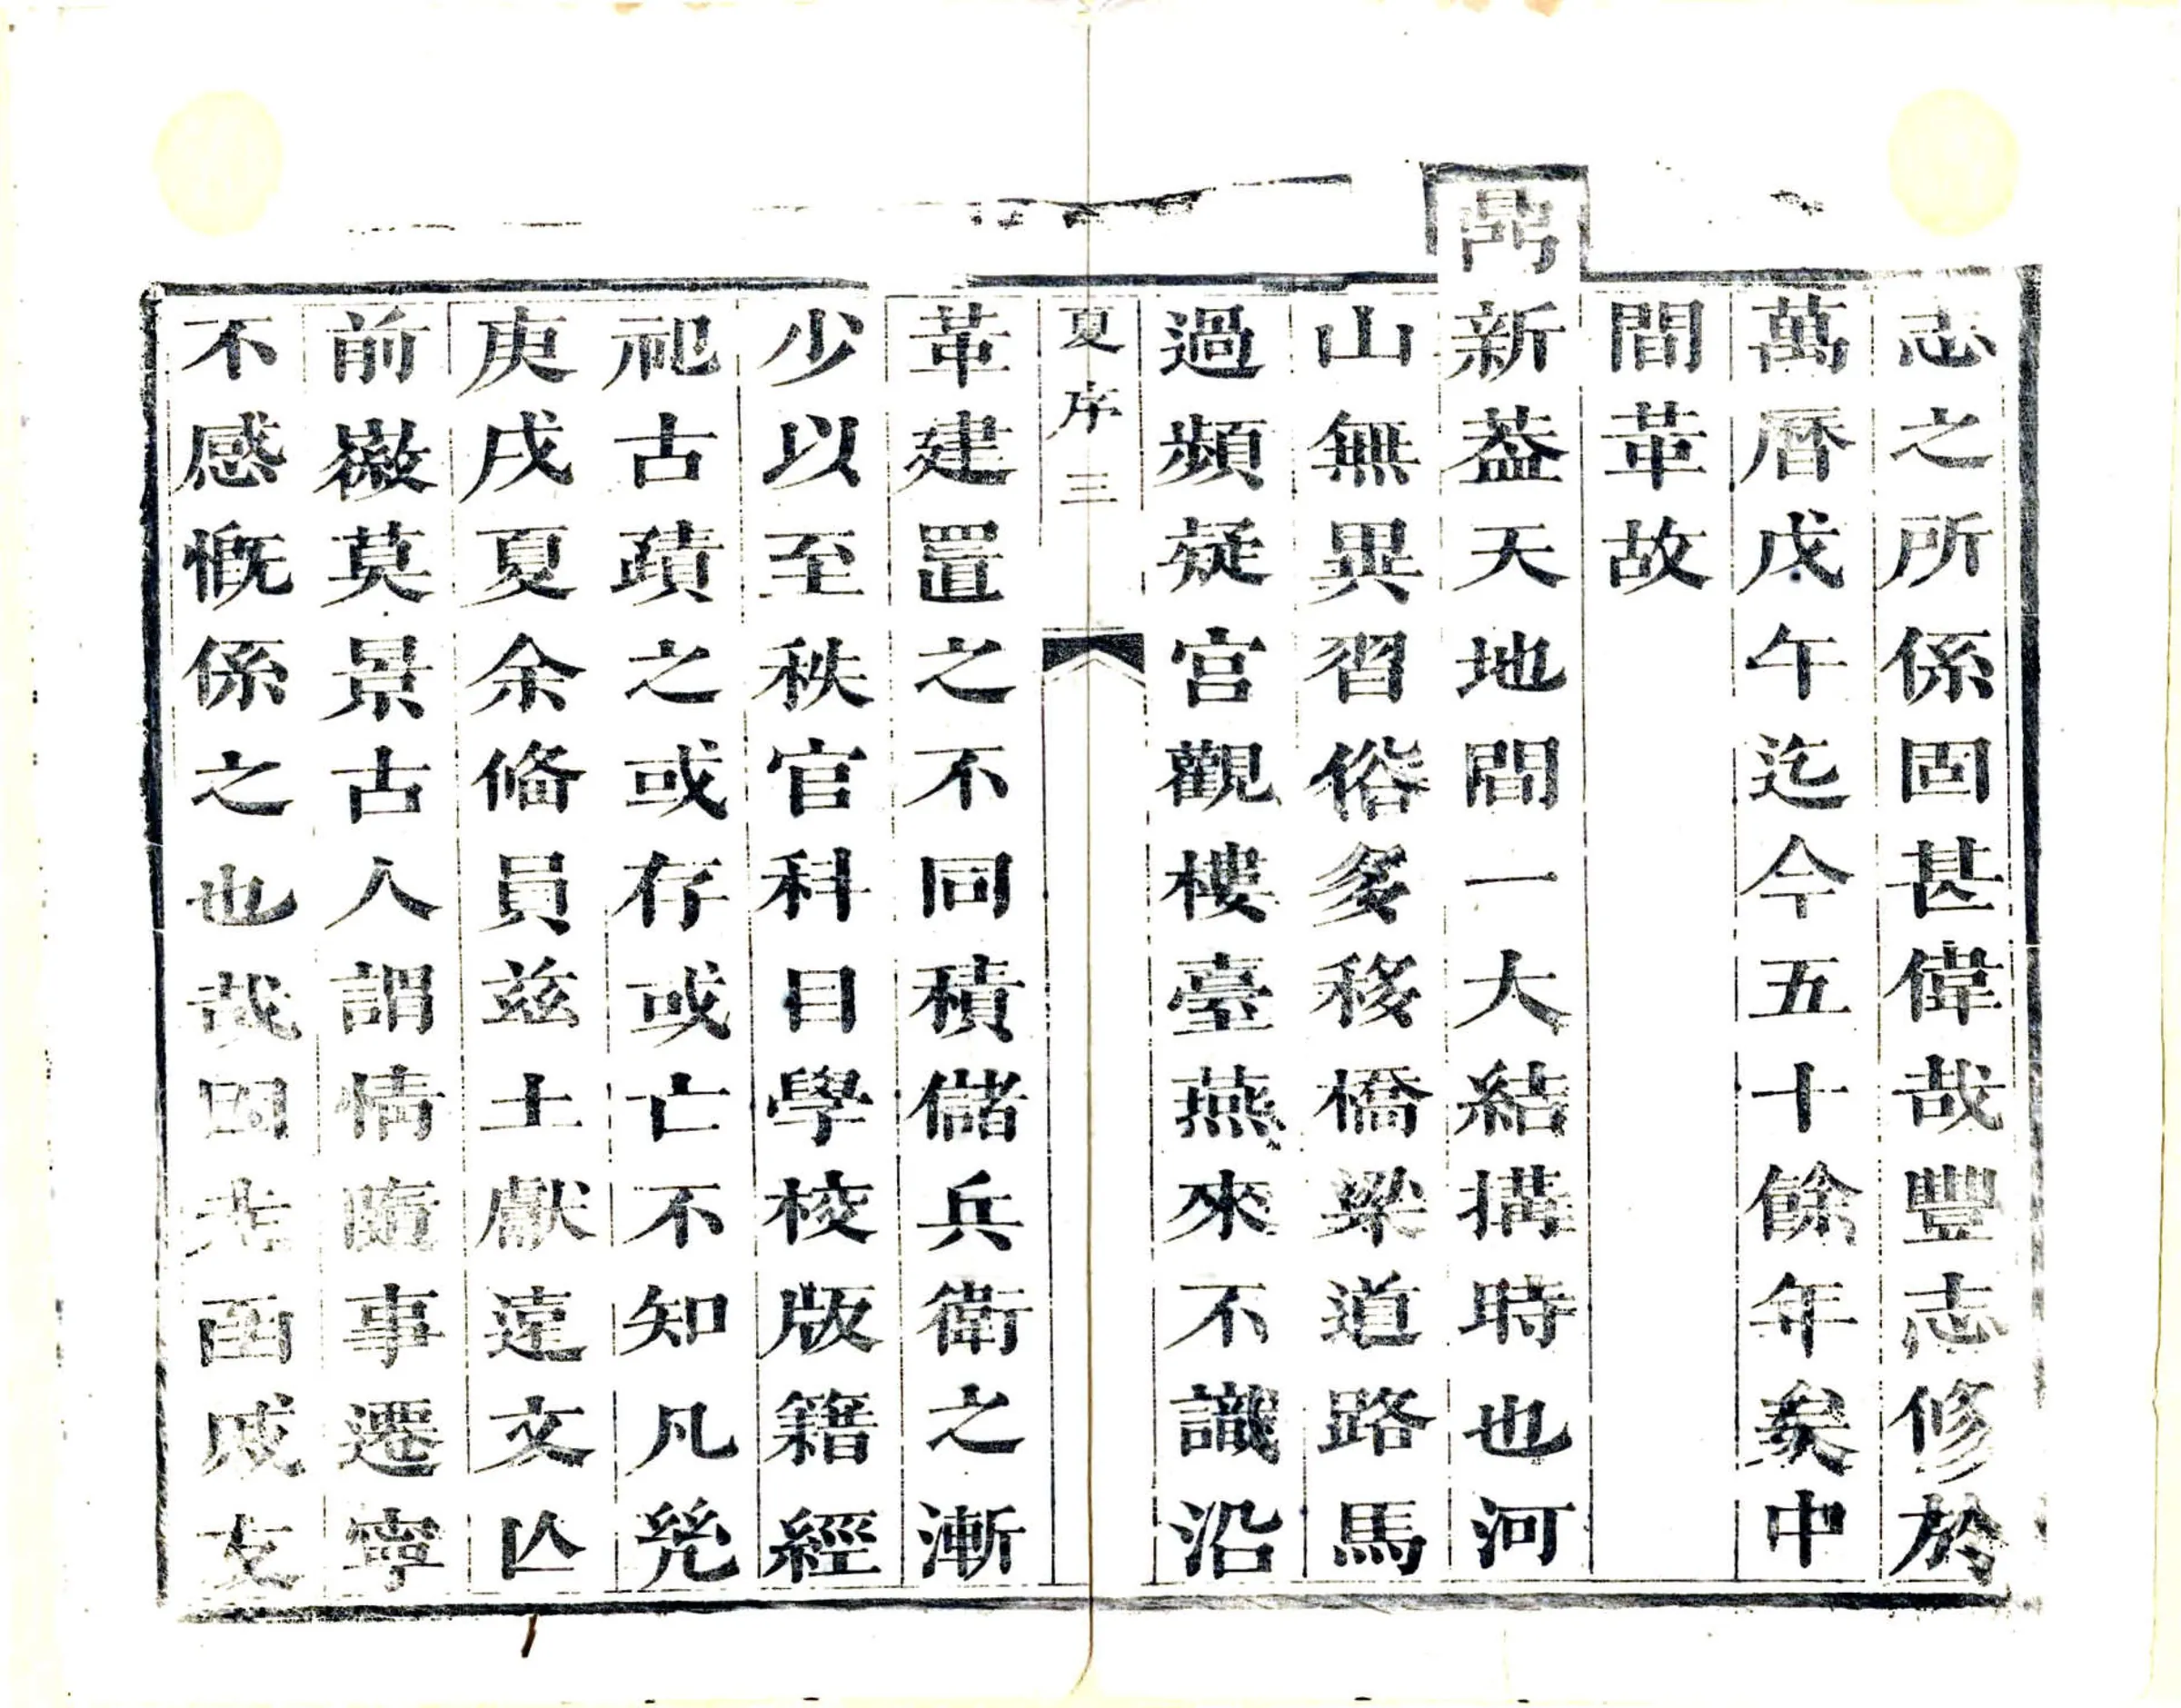 志之所係固甚偉哉豐志修於
萬曆戊午迄今五十餘年矣中
間革故
鼎新葢天地間一大結搆時也河
山無異習俗多移橋梁道路馬
過頻疑宫觀樓臺燕來不識沿
夏序 三
革建置之不同積儲兵衛之漸
少以至秩官科目學校版籍經
祀古蹟之或存或亡不知凡幾
庚戌夏余俻員兹土獻逺文亾
前徽莫景古人謂情隨事遷寧
不感慨係之也哉因恭函戚友